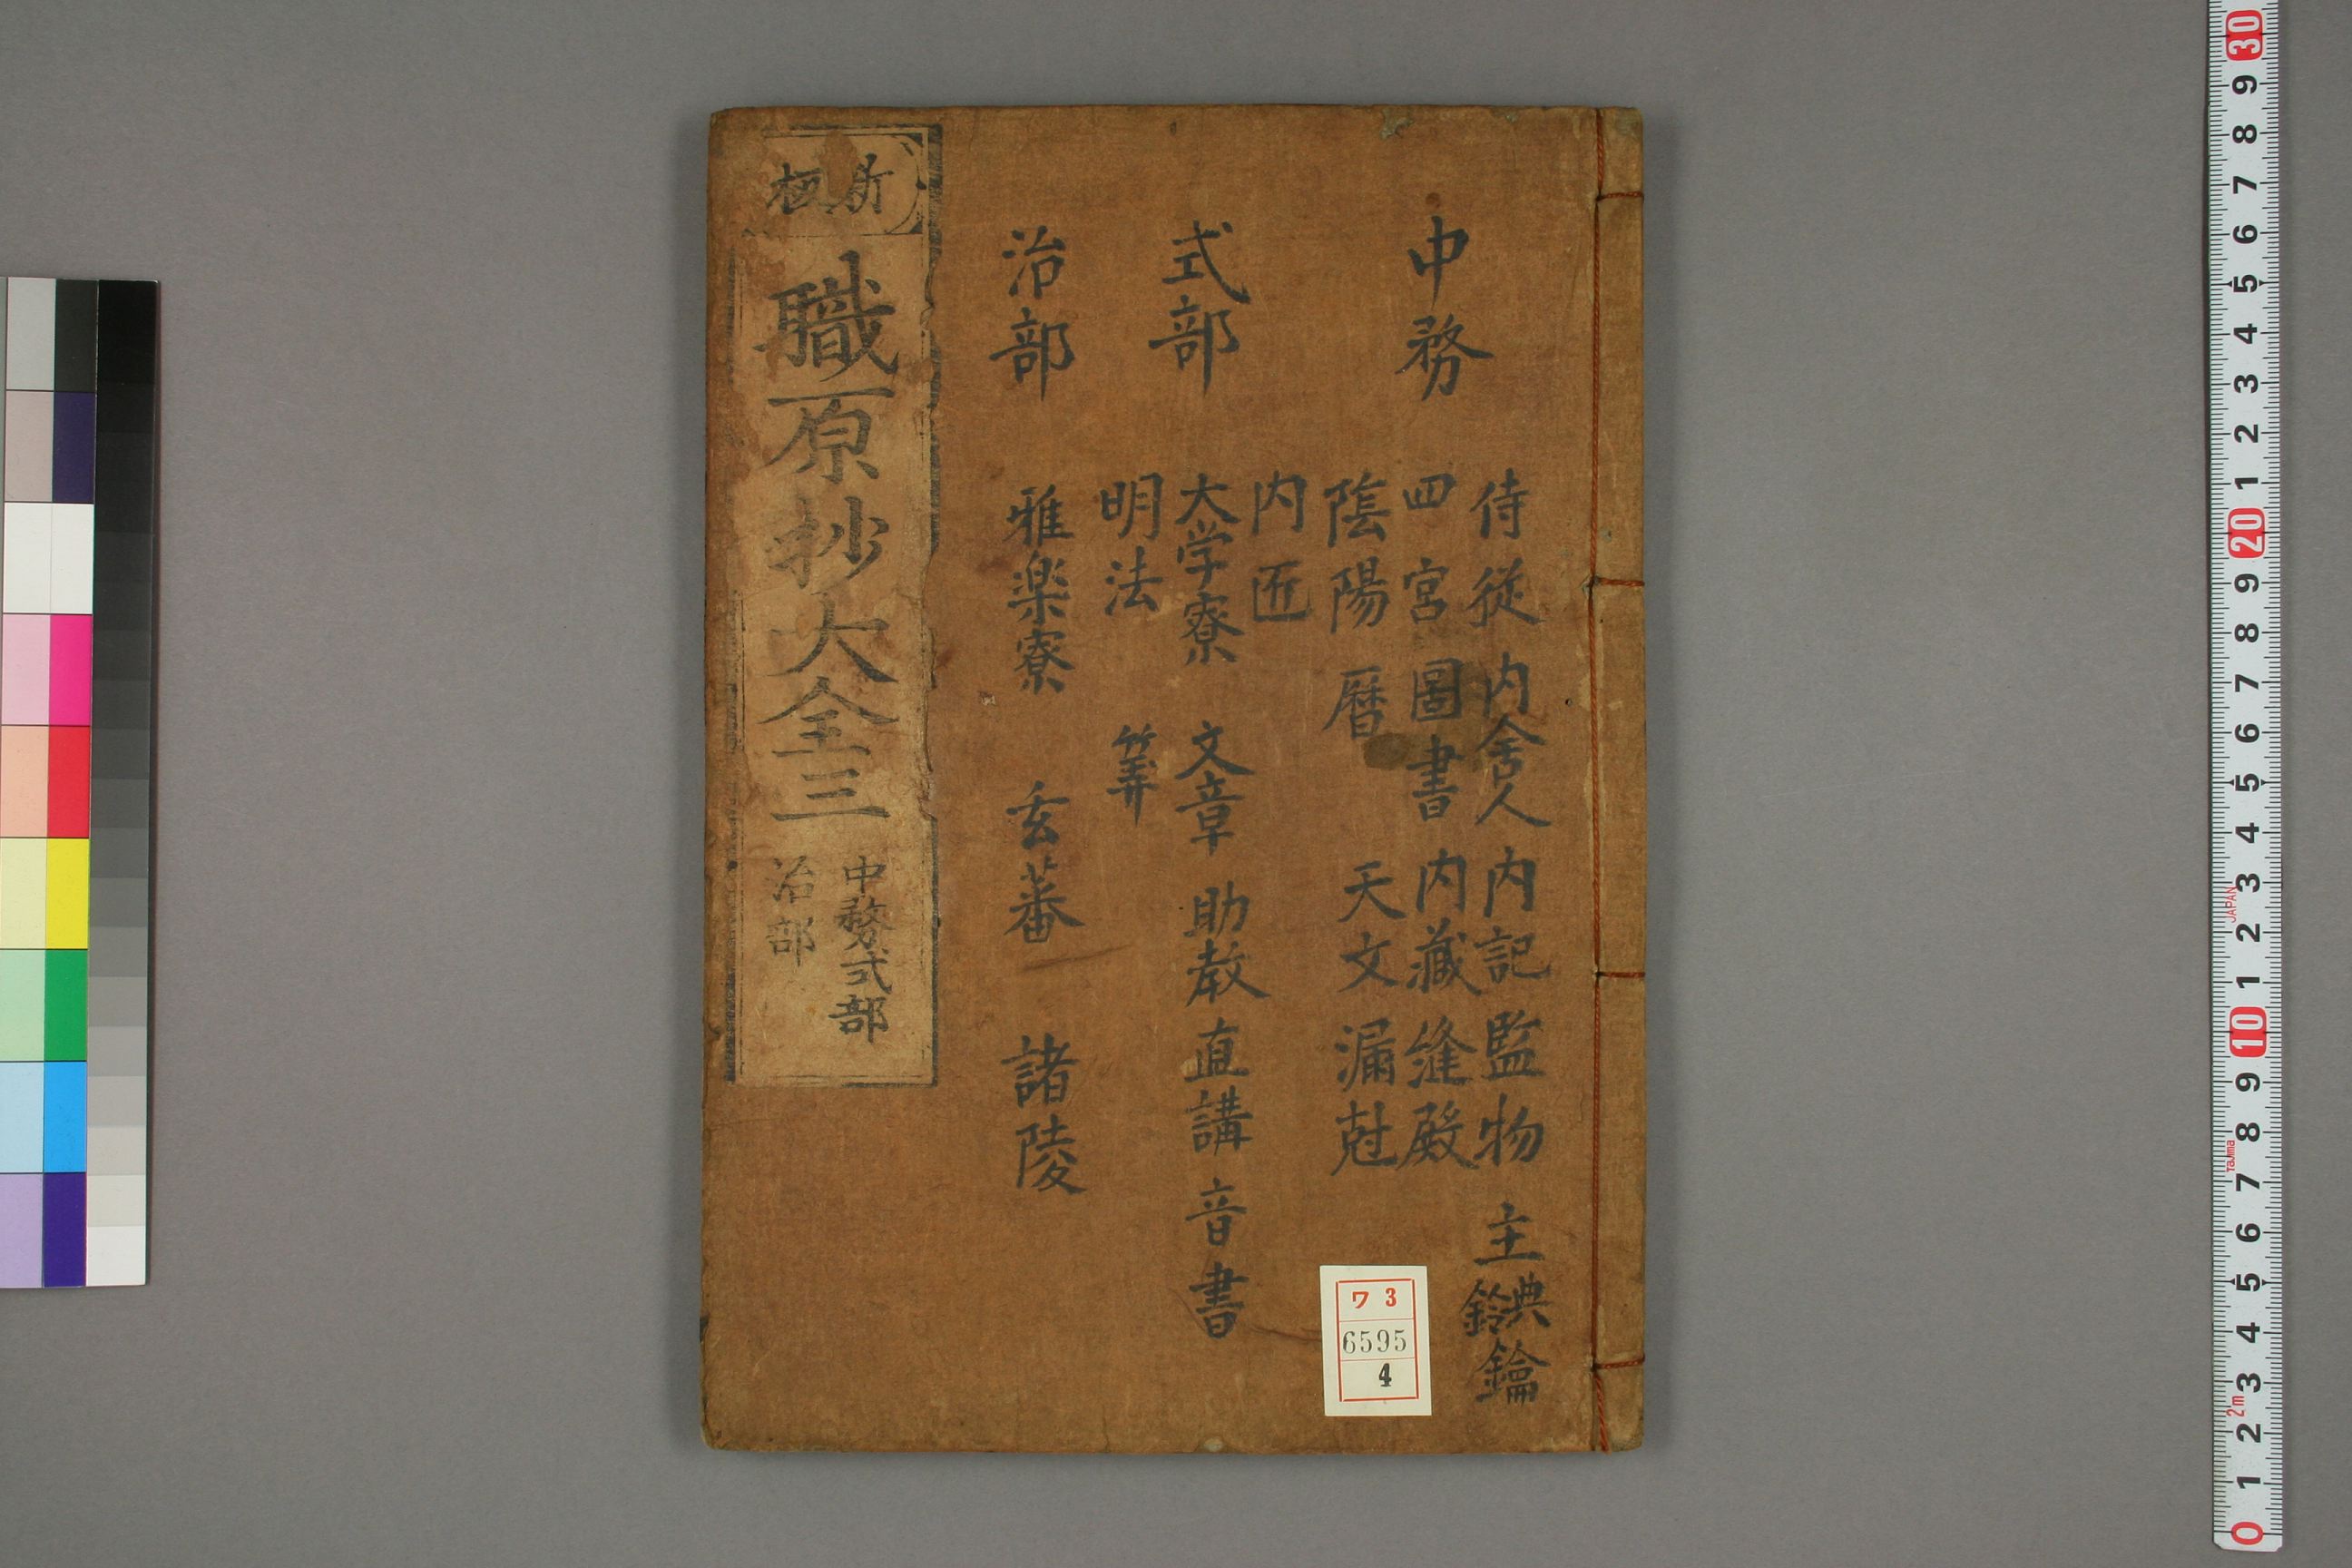 中務
侍従 内舎人 内記 監物 主典鈴鑰
四宮 圖書 内藏 縫殿
陰陽 暦 天文 漏尅
内匠
式部
大学寮 文章 助教 直講 音書
明法 筭
治部
雅楽寮 玄蕃 諸陵
新板
職原抄大全三
中務式部
治部
ワ 3
6595
4
0 1 2 3 4 5 6 7 8 9 10 1 2 3 4 5 6 7 8 9 20 1 2 3 4 5 6 7 8 9 30
2m Tajima JAPAN